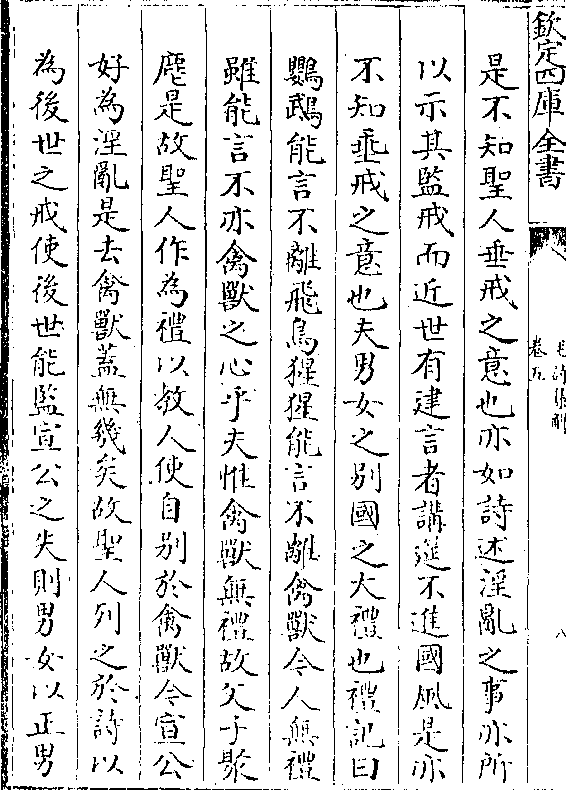 欽定四庫全書
毛詩集解
卷五
八
是不知聖人垂戒之意也亦如詩述淫亂之事亦所
以示其監戒而近世有建言者講筵不進國風是亦
不知垂戒之意也夫男女之别國之大禮也禮記曰
鸚鵡能言不離飛鳥猩猩能言不離禽獸今人無禮
雖能言不亦禽獸之心乎夫惟禽獸無禮故父子聚
麀是故聖人作為禮以教人使自别於禽獸今宣公
好為淫亂是去禽獸蓋無幾矣故聖人列之於詩以
為後世之戒使後世能監宣公之失則男女以正男